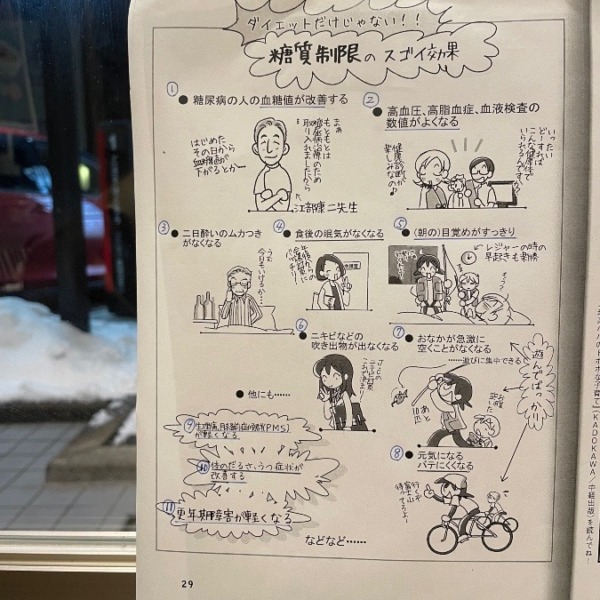 ダイエットだけじゃない！！
糖質制限のスゴイ効果
①
● 糖尿病の人の血糖値が改善する
まぁ
もともとは
糖尿病治療のため
取り入れましたから
はじめた
その日から
血糖値が
下がるとかー
江部康二先生
②
● 高血圧、高脂血症、血液検査の
数値がよくなる
いったい
どーすれば
こんな健康体で
いられるんです？
健康診断が
楽しみなの♪
③
● 二日酔いのムカつき
がなくなる
うむ
今日もいけるか…
④
● 食後の眠気がなくなる
⑤
● (朝の)目覚めがすっきり
レジャーの時の
早起きも楽勝
⑥
● ニキビなどの
吹き出物が出なくなる
⑦
● おなかが急激に
空くことがなくなる
……遊びに集中できる
あと
10匹
遊んでばっかり
● 他にも……
⑨ 生理痛、月経前症候群(PMS)
が軽くなる
⑩ 体のだるさ、うつ症状が
改善する
⑪ 更年期障害が軽くなる
⑧
● 元気になる
バテにくくなる
行くぞ
富士山
待ってろよー
などなど……
29
(KADOKAWA/中経出版)を読んでね！